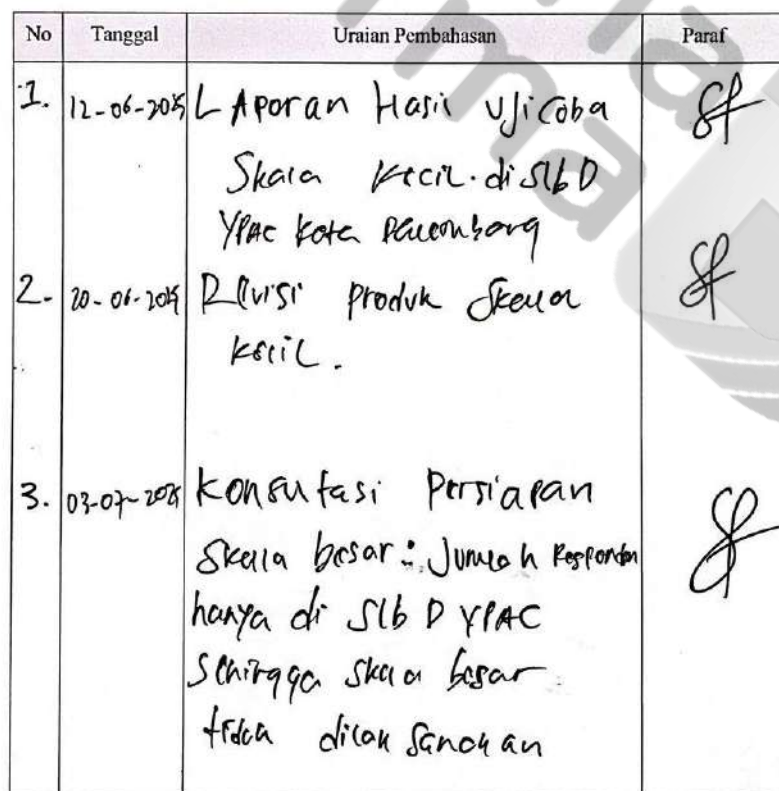 No Tanggal Uraian Pembahasan Paraf
1. 12-06-2025 LAporan Hasil Uji Coba
Skala Kecil. di Slb D
YPAC Kota Palembang
2. 20-06-2025 Revisi produk Skala
Kecil.
3. 03-07-2025 Konsultasi Persiapan
Skala besar: Jumlah Responden
hanya di Slb D YPAC
Sehingga skala besar
tidak dilaksanakan